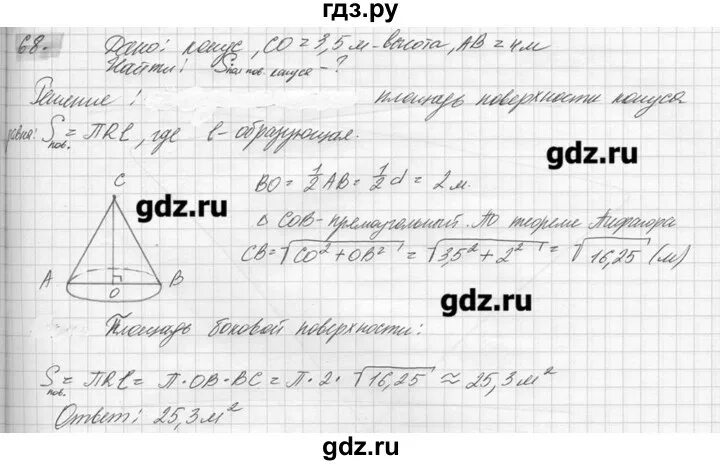 гдз.ру
68. Дано: конус, CO = 3,5 м - высота, AB = 4м
Найти: Sпол. пов. конуса - ?
Решение: площадь поверхности конуса
равна: Sпов. = ПRl, где l - образующая.
BO = 1/2 AB = 1/2 d = 2 м.
gdz.ru
Δ COB - прямоугольный. По теореме Пифагора
CB = √(CO² + OB²) = √(3,5² + 2²) = √16,25 (м)
C
A
O
B
gdz.ru
gdz.ru
Площадь боковой поверхности:
Sпов. = ПRl = П·OB·BC = П·2·√16,25 ≈ 25,3 м²
Ответ: 25,3 м²
gdz.ru
gdz.ru